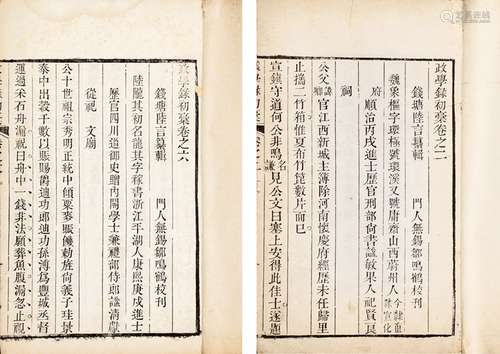 政學錄初稾卷之二
錢塘陸言纂輯 門人無錫鄒鳴鶴校刊
魏象樞字環極號環溪又號庸齋山西蔚州人今隸直隸宣化
府 順治丙戌進士歷官刑部尚書謚敏果入祀賢良
祠
公父謙官江西新城主簿除河南懷慶府經歷未任歸里
止攜二竹箱惟夏布竹箆數片而已
宣鎮守道何公非鳴名謙見公文曰塞上安得此佳士遂題
政學錄初稾卷之六
錢塘陸言纂輯 門人無錫鄒鳴鶴校刊
陸隴其初名龍其字稼書浙江平湖人康熙庚戌進士
歷官四川道御史贈內閣學士兼禮部侍郎謚清獻
從祀 文廟
公十世祖宗秀明正統中傾粟麥賑饑勅旌尚義子珪景
泰中出穀千數以賑賜爵廸功郎廸功孫溥爲豐城丞督
運過采石舟漏祝曰舟中一錢非法願葬魚腹漏忽止視